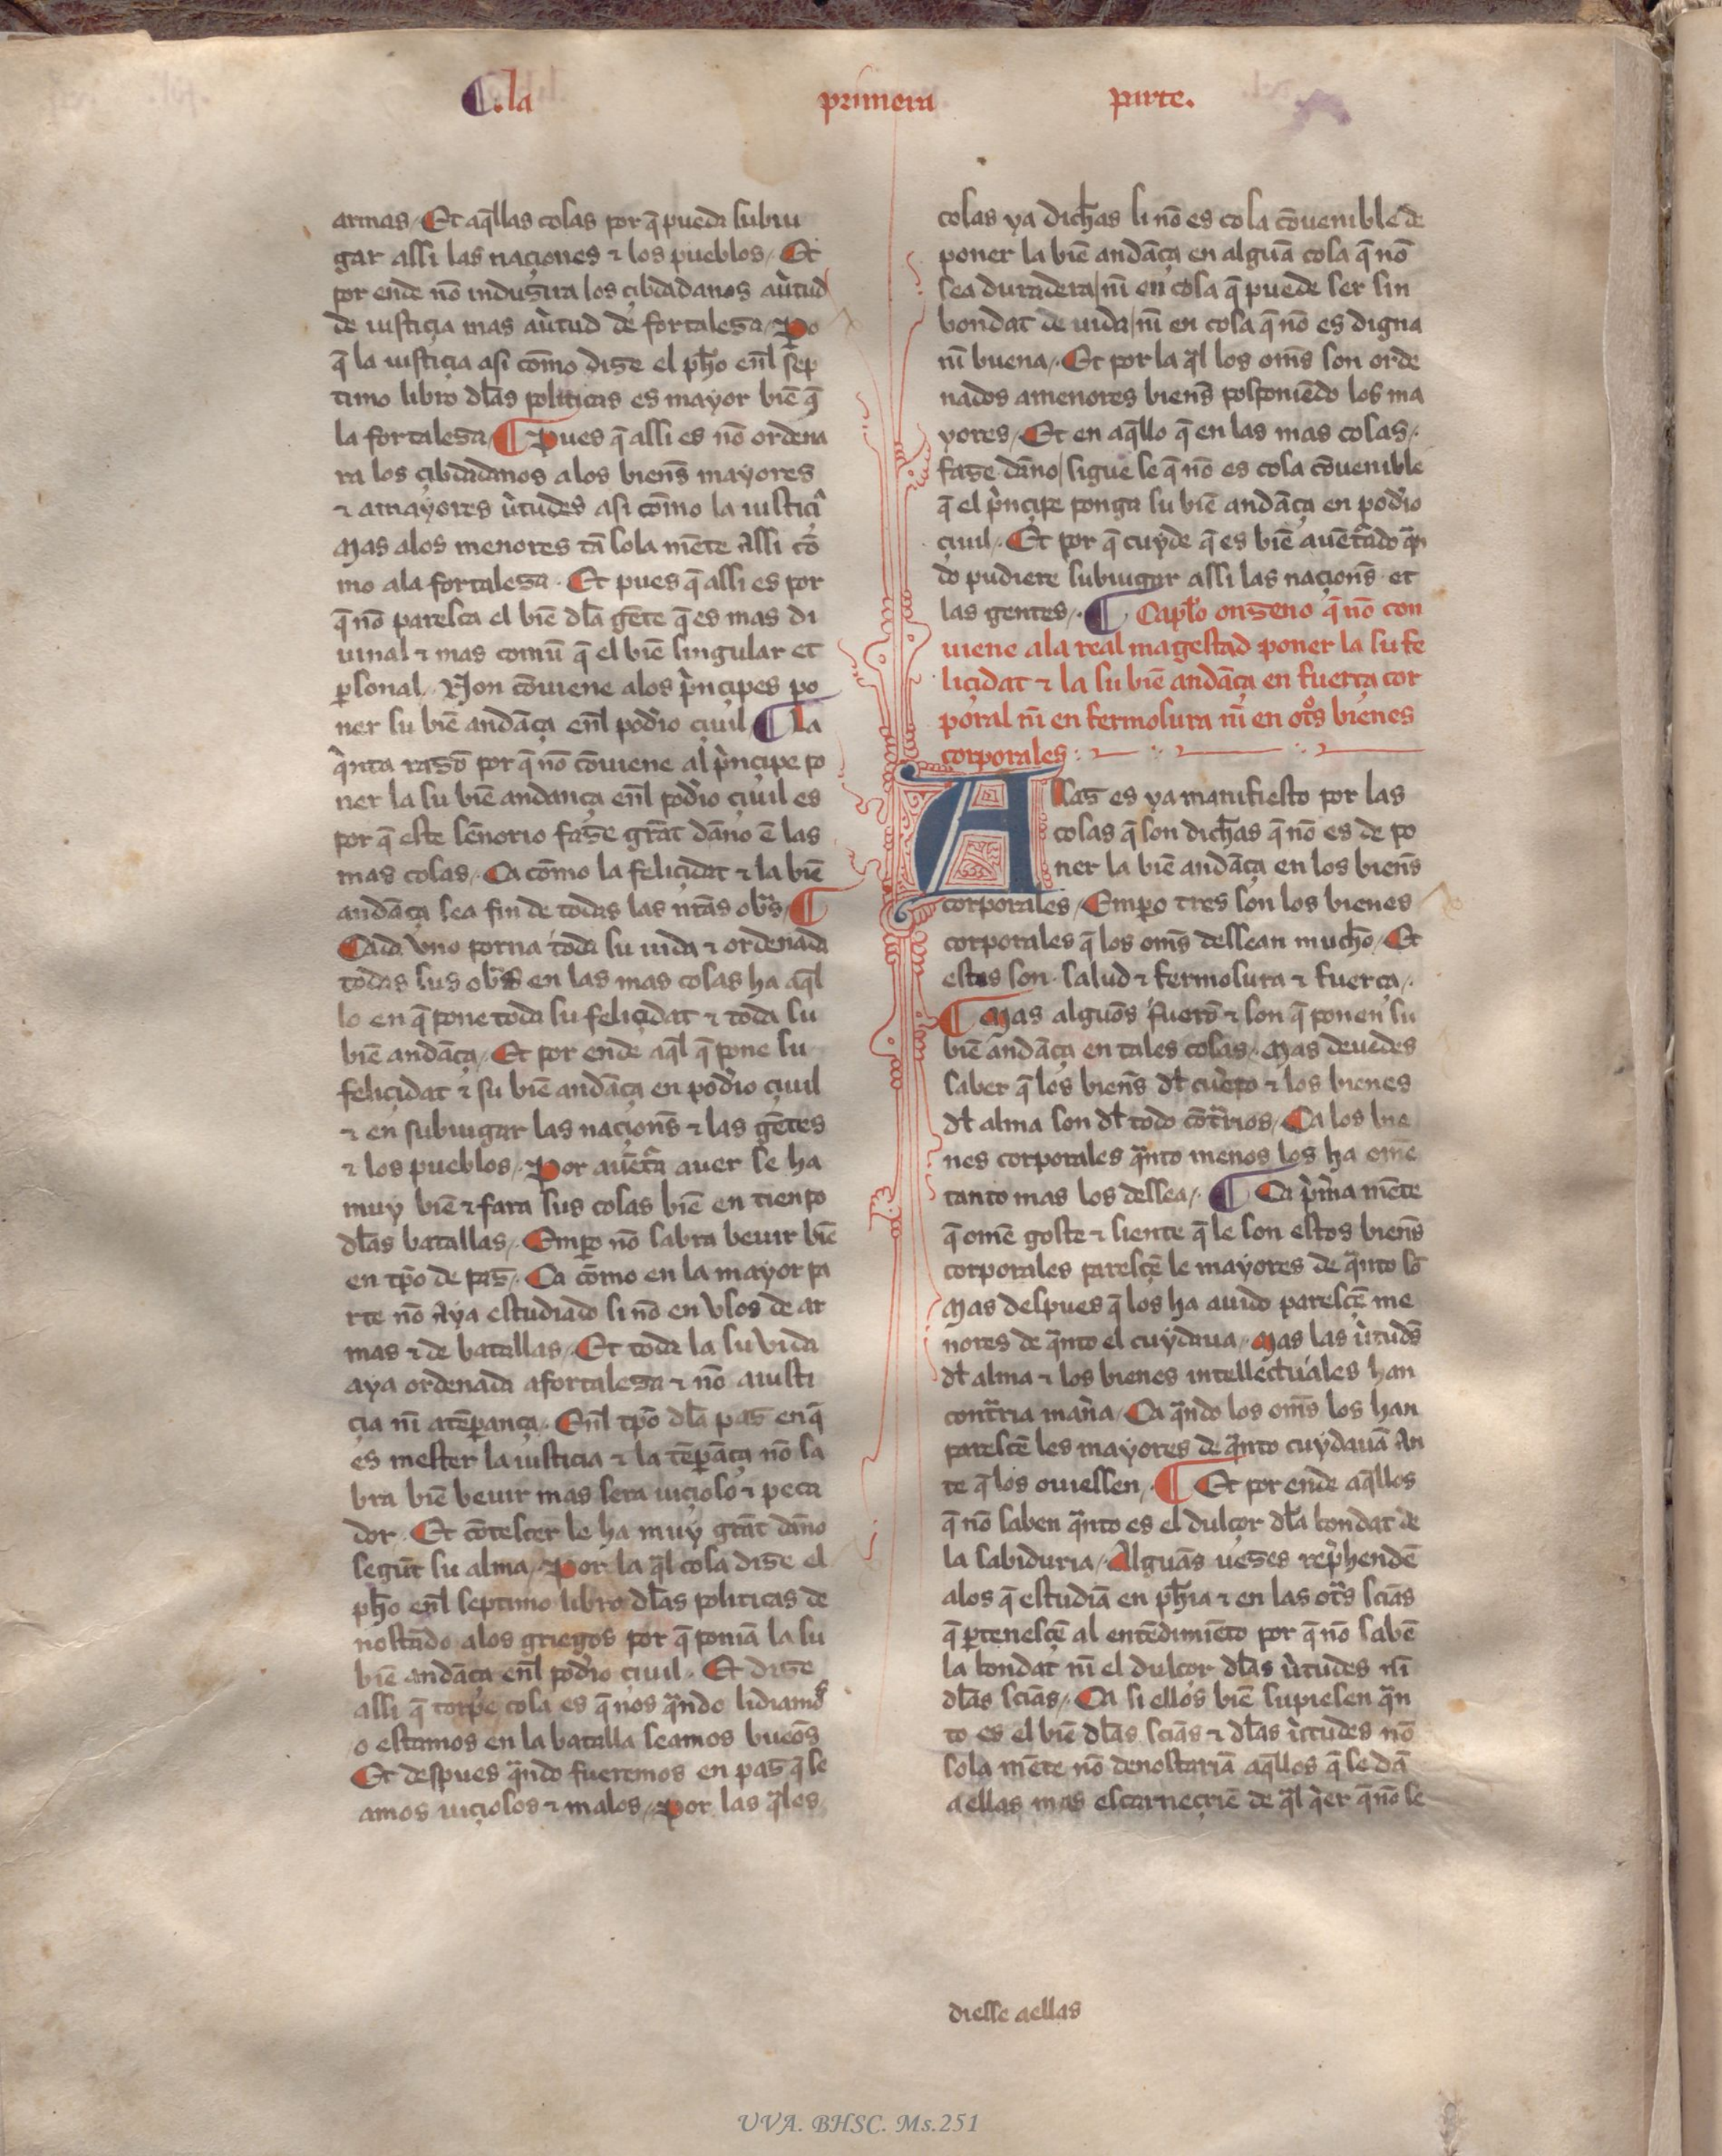 .la primera parte.
armas Et aq̄llas cosas por q̄ pueda subiu
gar assi las naçiones τ los pueblos Et
por ende nō indusira los çibdadanos a ùtud
de iustiçia mas a ùtud de fortaleza Po
q̄ la iustiçia asi cōmo dize el ph̄o en̄l sep
timo libro dl̄as politicas es mayor biē q̄
la fortaleza Pues q̄ assi es nō ordena
ra los çibdadanos a los bien̄s mayores
τ a mayores ùtudes asi cōmo la iustiçi
Mas alos menores tā sola mēte Assi cō
mo ala fortaleza Et pues q̄ assi es por
q̄ nō paresca el biē dl̄a gēte q̄ es mas di
uinal τ mas comū q̄ el biē singular et
ꝑsonal Non cōuiene alos p̀nçipes po
ner su biē andāça en̄l podío çiuil La
q̀nta razō por q̄ nō cōuiene al p̀nçipe po
ner la su biē andança en̄l podío çiuil es
por q̄ este sēnorio faze grāt dāno ē las
mas cosas Ca cōmo la feliçidat τ la biē
andāça sea fin de todas las nr̄as obs̄
Cada vno porna toda su uida τ ordenada
todas sus obs̄ en las mas cosas ha aq̄l
lo en q̄ pone toda su feliçidat τ toda su
biē andāça Et por ende aq̄l q̄ pone su
feliçidat τ su biē andāça en podío çiuil
τ en subiugar las naçion̄s τ las gētes
τ los pueblos Por auētā auer se ha
muy biē τ fara sus cosas biē en tienpo
dl̄as batallas Emꝑo nō sabra beuir biē
en tp̄o de paz Ca cōmo en la mayor pa
rte nō Aya estudiado si nō en vsos de ar
mas τ de batallas Et toda la su vida
aya ordenada a fortaleza τ nō a iusti
çia nī a tēꝑança En̄l tp̄o dl̄a paz en q̄
es mester la iusticia τ la tēꝑāça nō sa
bra biē beuir mas sera uiçioso τ peca
dor Et cōtescer le ha muy grāt dāno
segūt su alma Por la q̄l cosa dize el
ph̄o en̄l septimo libro dl̄as politicas de
nostādo alos griegos por q̄ poniā la su
biē andāça en̄l podío çiuil Et dize
assi q̄ torpe cosa es q̄ nos q̄ndo lidiamos
o estamos en la batalla seamos bueōs
Et despues q̄ndo fueremos en paz q̄ se
amos uiçiosos τ malos Por las q̄les
cosas ya dichas si nō es cosa cōuenible de
poner la biē andāça en algūa cosa q̄ nō
sea duradera nī en cosa q̄ puede ser sin
bondat de uida nī en cosa q̄ nō es digna
nī buena Et por la q̄l los om̄s son orde
nados a menores bien̄s posponiēdo los ma
yores Et en aq̄llo q̄ en las mas cosas
faze dāno sigue se q̄ nō es cosa cōuenible
q̄ el p̀nçipe ponga su biē andāça en podío
çiuil Et por q̄ cuyde q̄ es biē auētādo q̄n
do pudiere subiugar assi las naçion̄s et
las gentes Capl̄o onzeno q̄ nō con
uiene ala real magestad poner la su fe
liçidat τ la su biē andāça en fuerça cor
poral nī en fermosura nī en ot̊s bienes
corporales
Assaz es ya manifiesto por las
cosas q̄ son dichas q̄ nō es de po
ner la biē andāça en los bien̄s
corporales Emꝑo tres son los bienes
corporales q̄ los om̄s dessean mucho Et
estos son salud τ fermosura τ fuerça
Mas algūos fuerō τ son q̄ ponen su
biē andāça en tales cosas Mas deuedes
saber q̄ los bien̄s dl̄ cuèpo τ los bienes
dl̄ alma son dl̄ todo cōtrios Ca los bie
nes corporales q̄nto menos los ha omē
tanto mas los dessea Ca p̀m̄a mēte
q̄ omē goste τ siente q̄ le son estos bien̄s
corporales parescē le mayores de q̄nto sō
Mas despues q̄ los ha auido parescē me
nores de q̄nto el cuydaua Mas las ùtudēs
dl̄ alma τ los bienes intellectuales han
cont̄ria man̄a Ca q̄ndo los om̄s los han
parescē les mayores de q̄nto cuydauā An
te q̄ los ouiessen Et por ende aq̄llos
q̄ nō saben q̄nto es el dulçor dl̄a bondat de
la sabiduria Algūas uezes rep̀hendē
alos q̄ estudiā en ph̄ia τ en las ot̄s sciās
q̄ ꝑtenescē al entēdimiēto por q̄ nō sabē
la bondat nī el dulçor dl̄as ùtudes nī
dl̄as sciās Ca si ellos biē supiesen q̄n
to es el biē dl̄as sciās τ dl̄as ùtudes nō
sola mēte nō denostariā aq̄llos q̄ se dā
a ellas mas escarneçriē de q̄l q̀er q̄ nō se
diesse aellas
UVA. BHSC. Ms.251